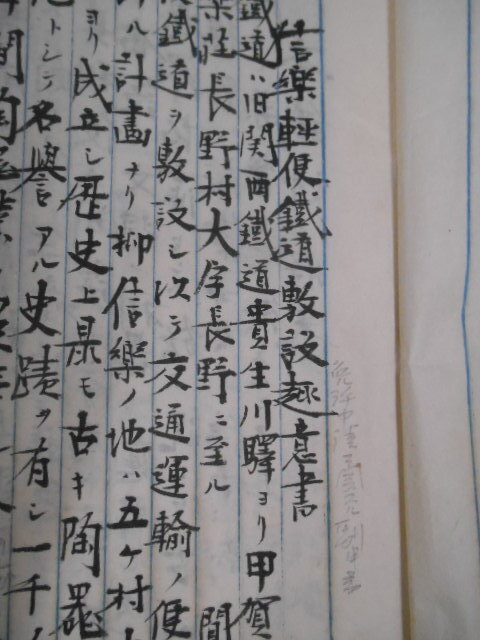 信樂輕便鐵道敷設趣意書
鐵道ハ旧関西鐵道貴生川驛ヨリ甲賀
樂莊長野村大字長野ニ至ル 間
鐵道ヲ敷設シ以テ交通運輸ノ便
ハ計畫ナリ抑信樂ノ地ハ五ケ村
ヨリ成立シ歴史上最モ古キ陶器
トシテ名譽アル史蹟ヲ有シ一千
間陶器業